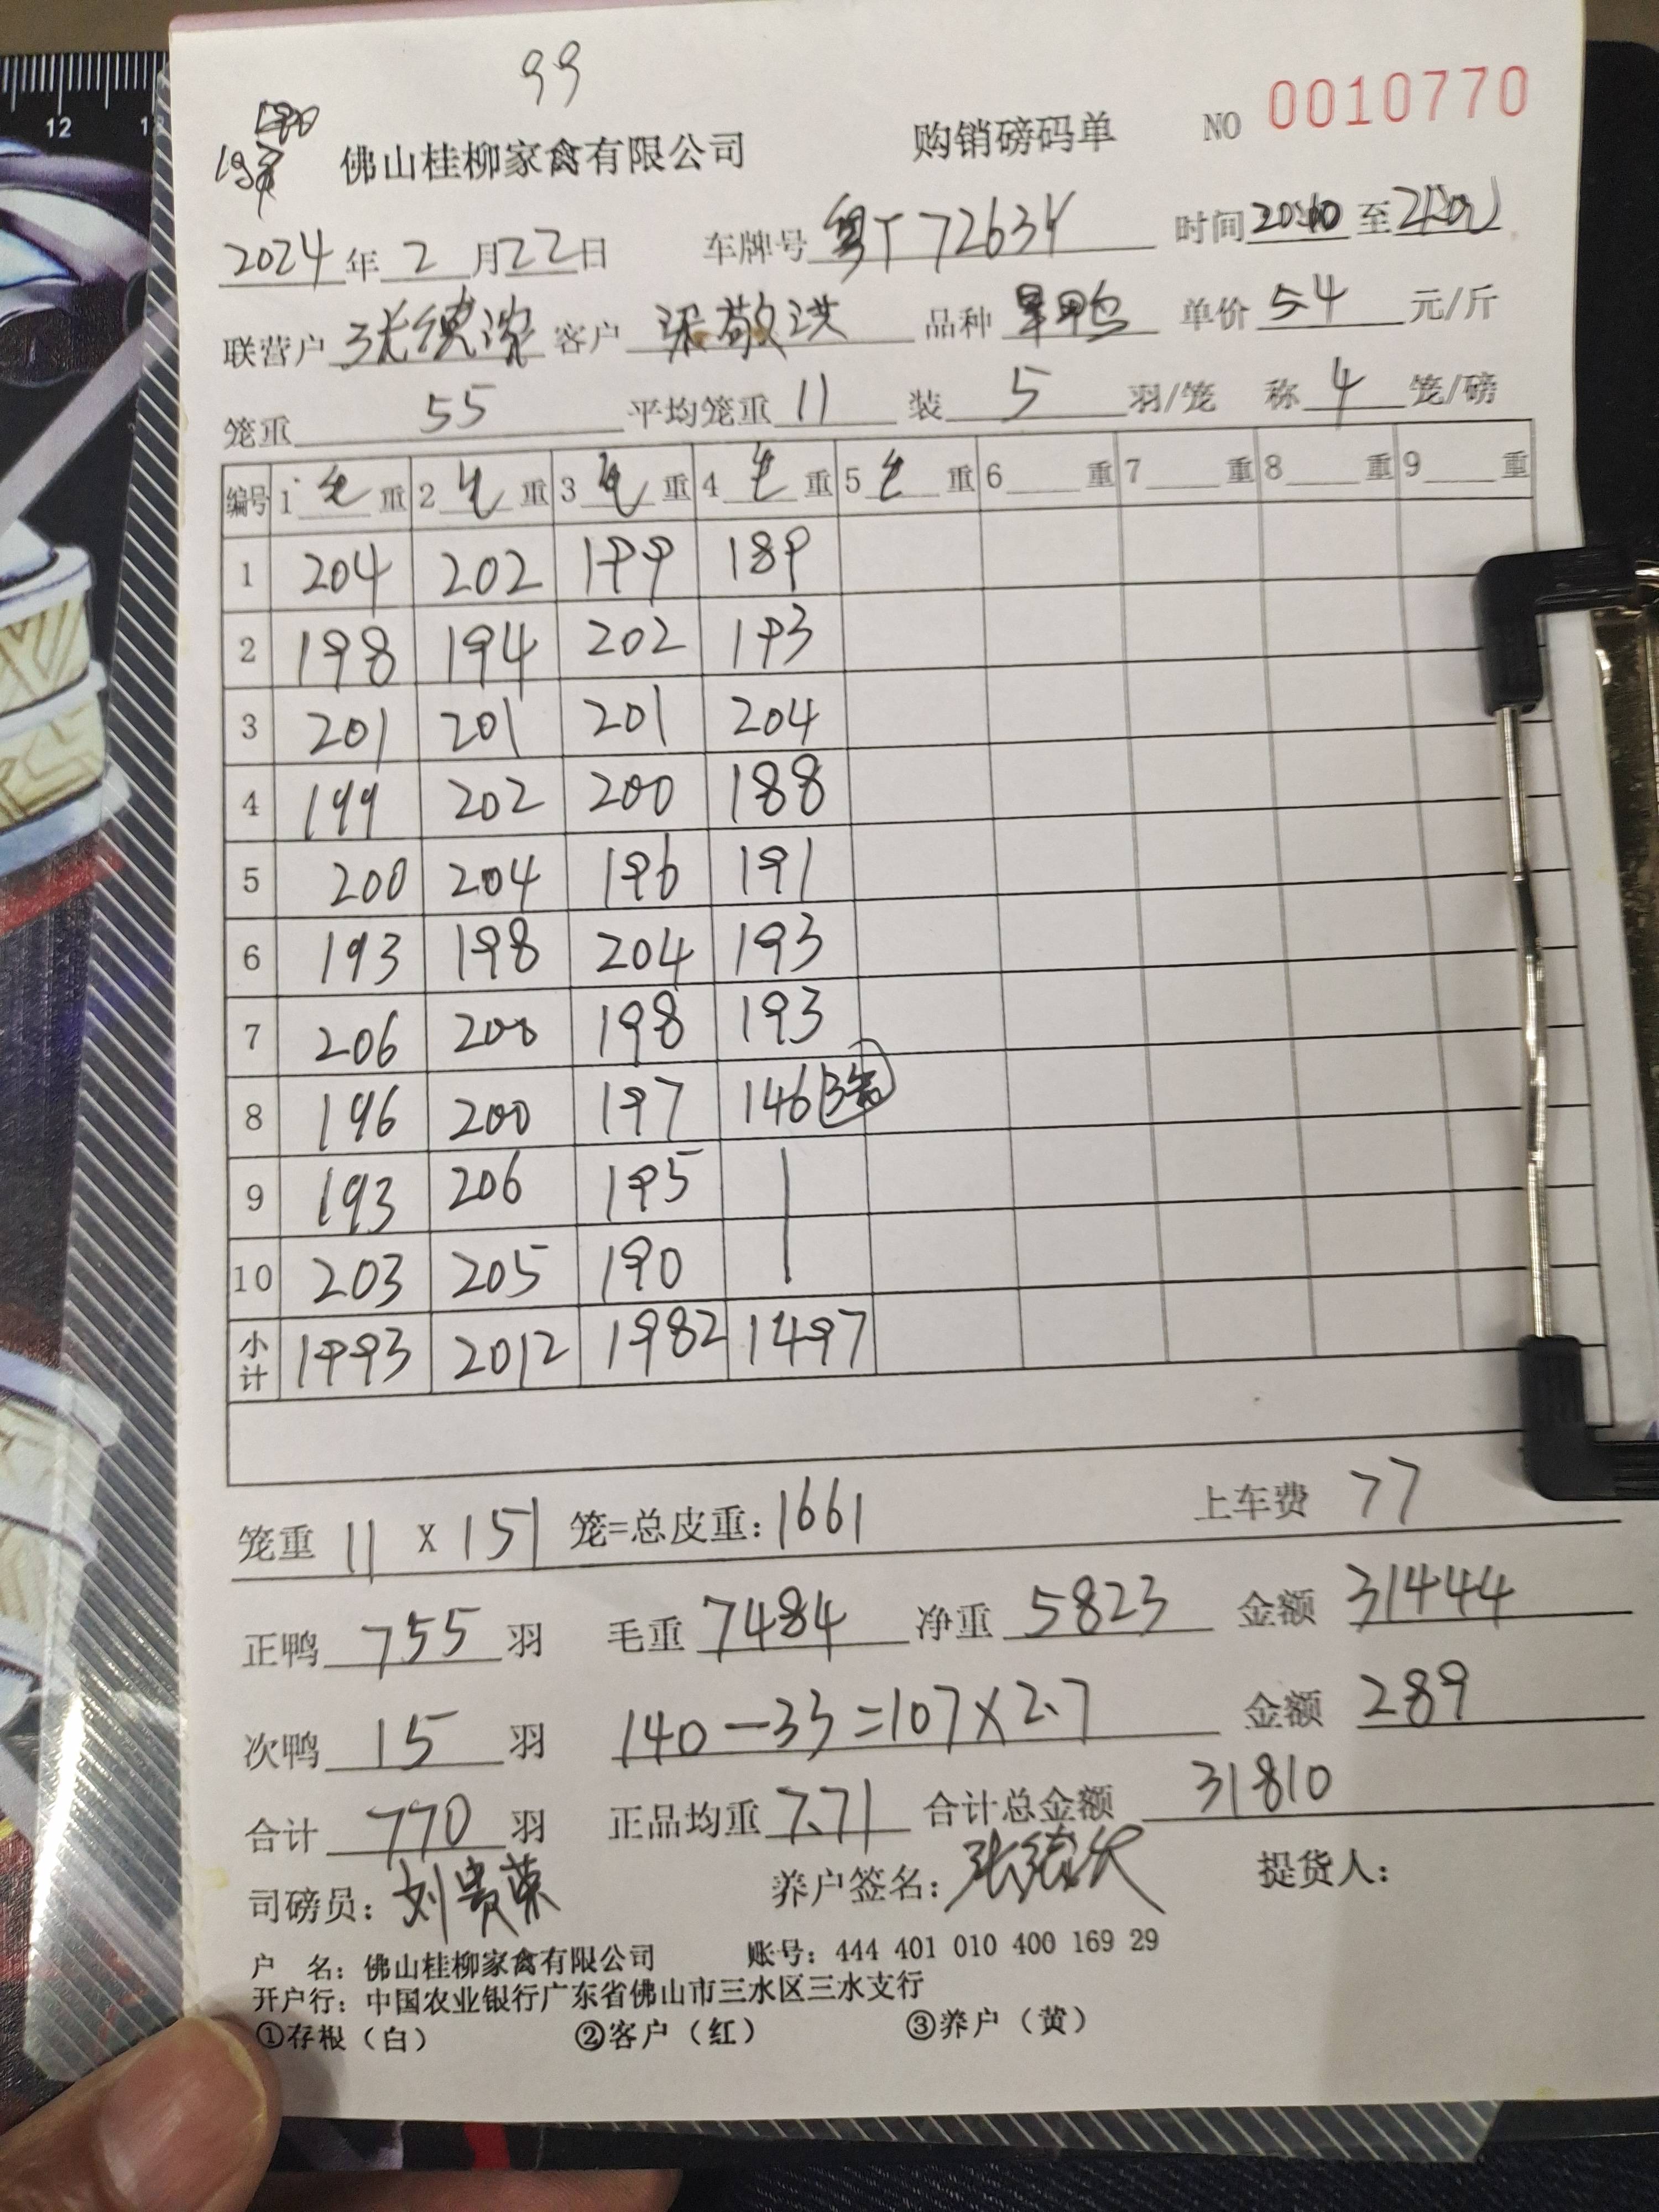 99
佛山桂柳家禽有限公司 购销磅码单 NO 0010770
2024年2月22日 车牌号 粤T7263Y 时间 至
联营户 张 客户 梁敬洪 品种 旱鸭 单价 54 元/斤
笼重 55 平均笼重 11 装 5 羽/笼 称 4 笼/磅
编号 1 毛 重 2 毛 重 3 毛 重 4 毛 重 5 毛 重 6 重 7 重 8 重 9 重
1 204 202 199 189
2 198 194 202 193
3 201 201 201 204
4 199 202 200 188
5 200 204 196 191
6 193 198 204 193
7 206 200 198 193
8 196 200 197 146 3笼
9 193 206 195
10 203 205 190
小计 1993 2012 1982 1497
笼重 11 x 151 笼=总皮重: 1661 上车费 77
正鸭 755 羽 毛重 7484 净重 5823 金额 31444
次鸭 15 羽 140-33=107×2.7 金额 289
合计 770 羽 正品均重 7.71 合计总金额 31810
司磅员: 刘贵荣 养户签名: 张 提货人:
户 名: 佛山桂柳家禽有限公司 账号: 444 401 010 400 169 29
开户行: 中国农业银行广东省佛山市三水区三水支行
①存根（白） ②客户（红） ③养户（黄）
12